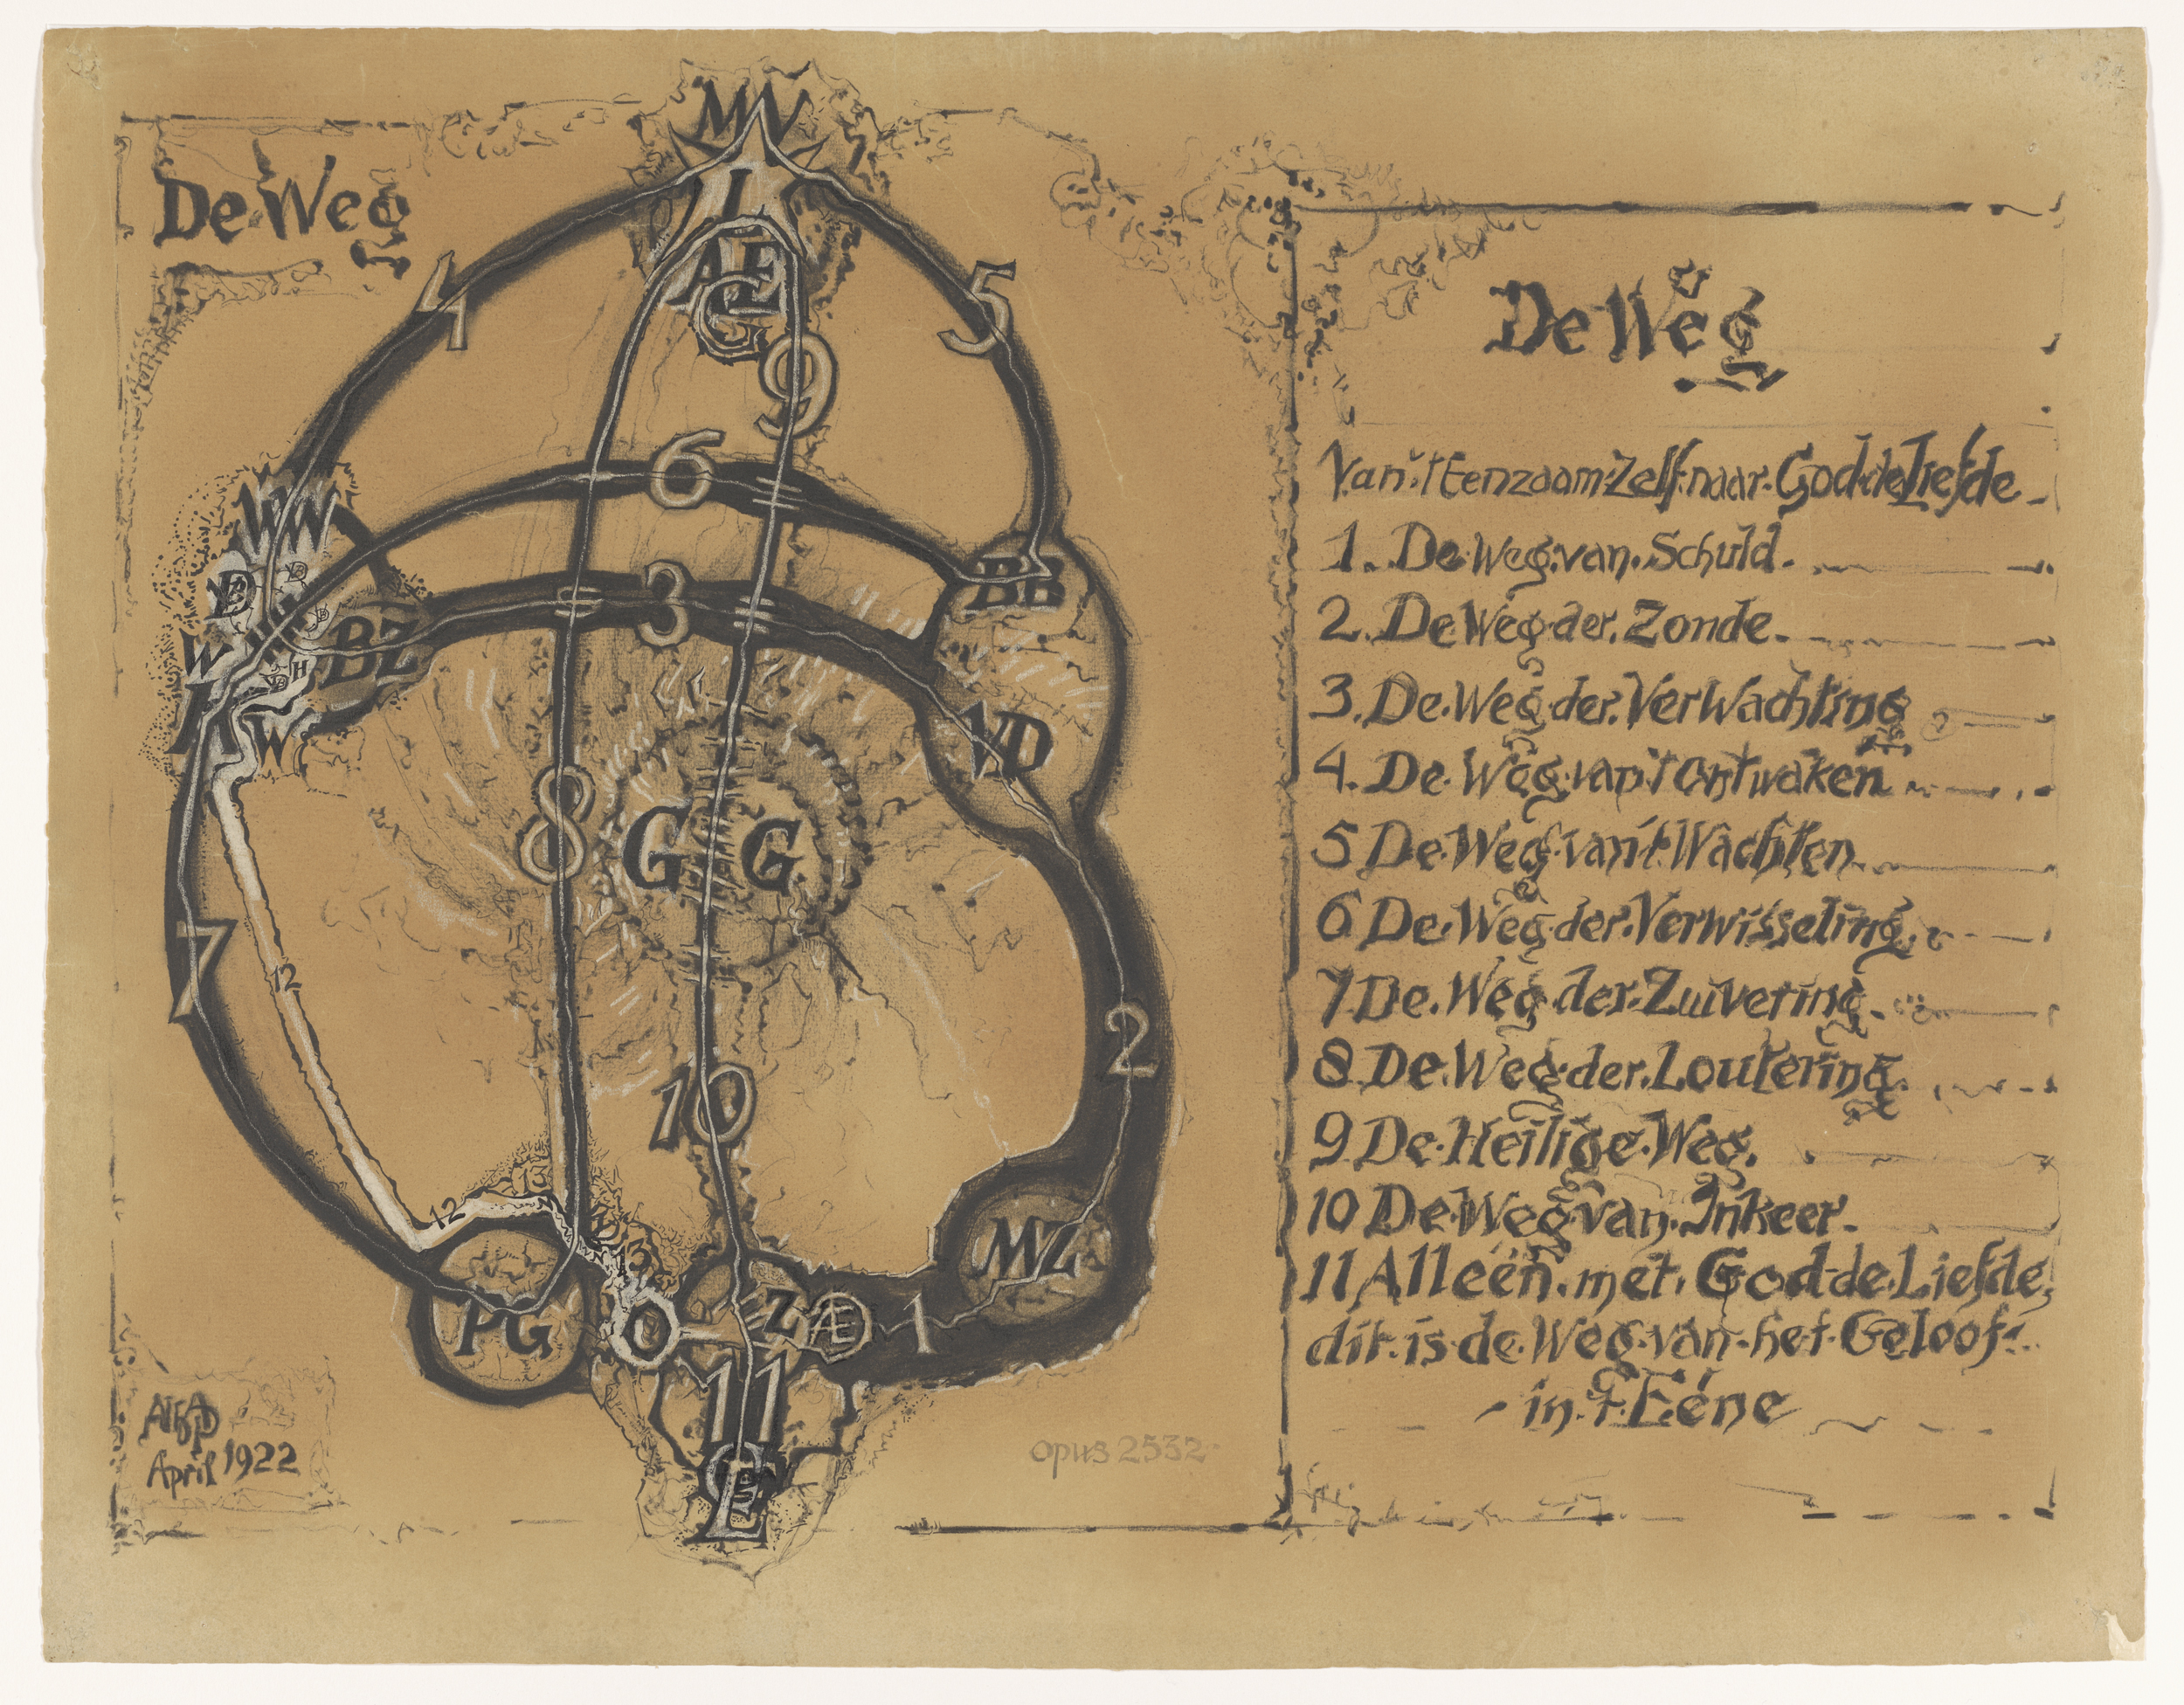 De Weg
MV
I
AE
G
4
5
9
6
WW
BZ
3
BB
W
H
W
VD
8
G G
7
12
10
2
12
13
13
MZ
PG
O
Z
Æ
1
11
GE
April 1922
opus 2532
De Weg
Van 't Eenzaam Zelf naar God de Liefde
1. De Weg van Schuld.
2. De Weg der Zonde.
3. De Weg der VerWachting
4. De Weg van 't Ontwaken
5 De Weg van 't Wachten
6 De Weg der Verwisseling
7 De Weg der Zuivering.
8 De Weg der Loutering.
9 De Heilige Weg.
10 De Weg van Inkeer.
11 Alleén met God de Liefde,
dit is de Weg van het Geloof
in 't Eéne